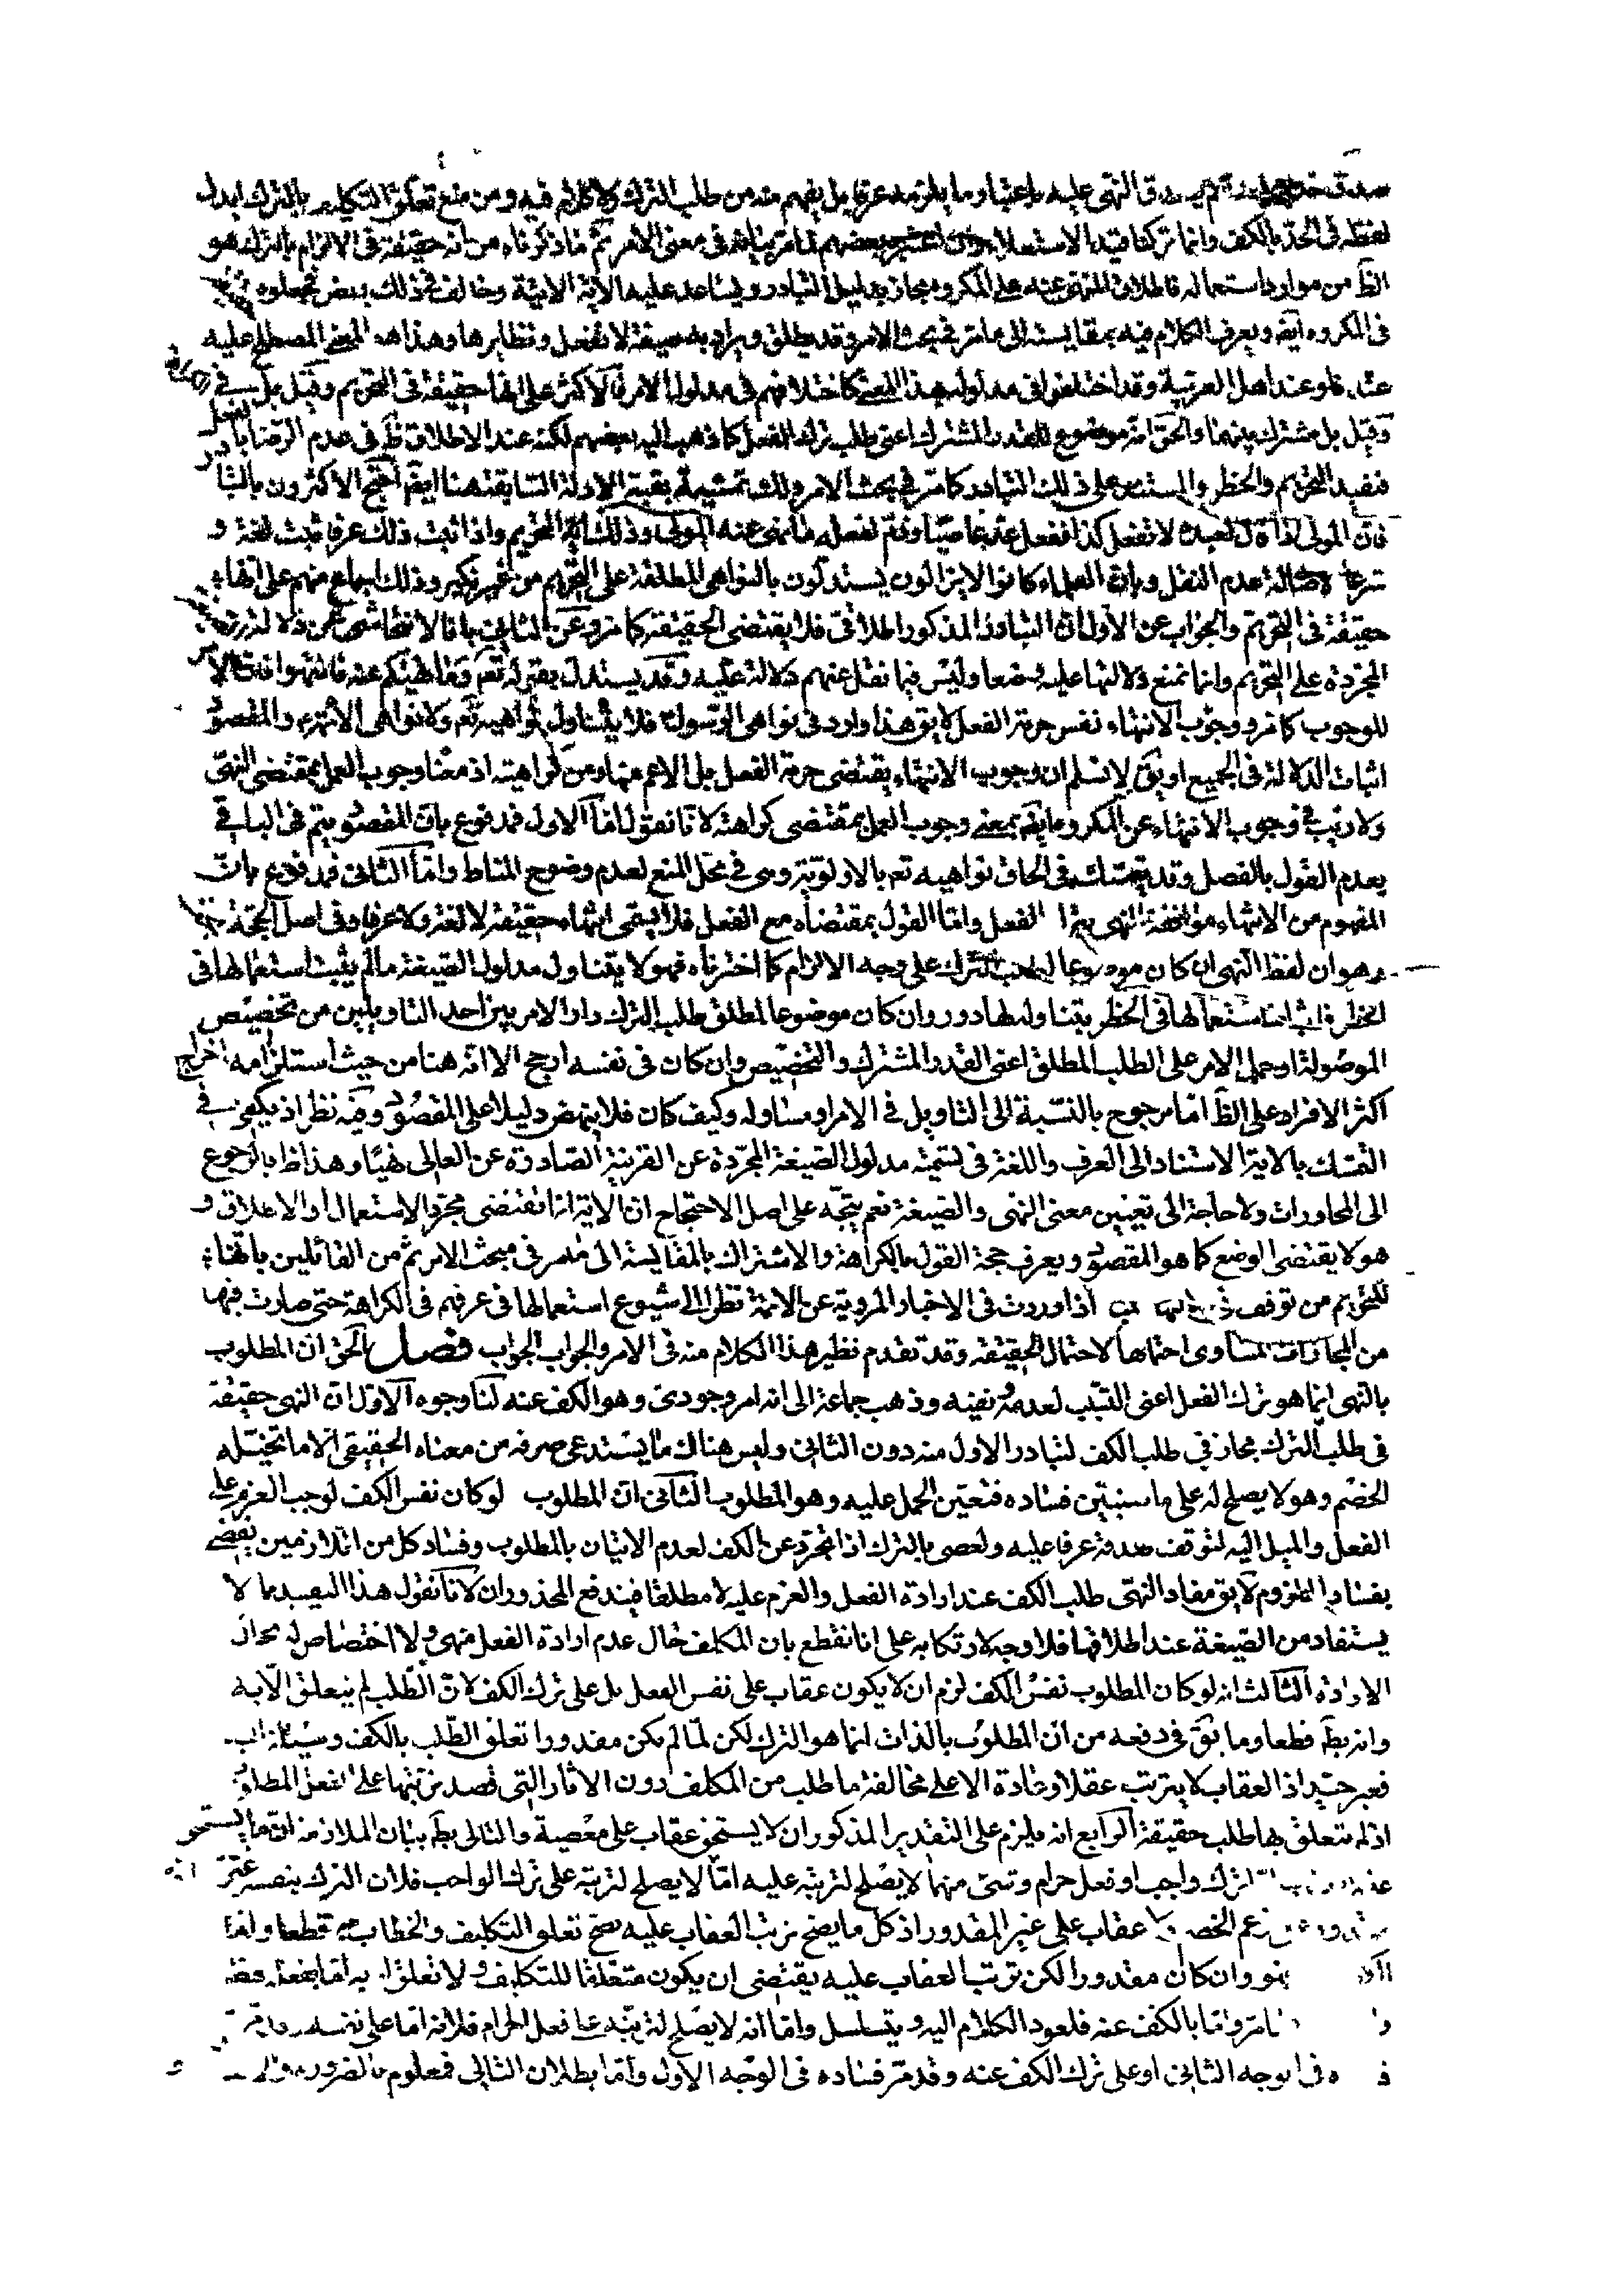 صدق النهى عليه باعتبار ما يلزمه عرفا بل يفهم منه من طلب الترك ولا كلام فيه ومن منع تعلق التكليف بالترك ابدل
لفظه فى الحد بالكف وانما تركنا قيد الاستعلاء وان اعتبره بعضهم لما مر بيانه فى معنى الامر ثم ما ذكرناه من انه حقيقة فى الالزام بالترك هو
الظ من موارد استعماله فاطلاق المنهى عنه على المكروه مجاز بدليل التبادر ويساعد عليه الآية الاتية وخالف فى ذلك بعض فجعلوه حقيقة
فى المكروه ايضا ويعرف الكلام فيه بمقايسته الى ما مر فى بحث الامر وقد يطلق ويراد به صيغة لا تفعل ونظايرها وهذا هو المعنى المصطلح عليه
عند علماء اهل العربية وقد اختلفوا فى مدلوله بهذا المعنى كاختلافهم فى مدلول الامر فالاكثر على انها حقيقة فى التحريم وقيل بل فى الكراهة
وقيل بل مشترك بينهما والحق انه موضوع للقدر المشترك اعنى طلب ترك الفعل كما ذهب اليه بعضهم لكنه عند الاطلاق ظ فى عدم الرضا بالفعل
فيفيد التحريم والحظر والمستند على ذلك التبادر كما مر فى بحث الامر ولك تمشية بقية الادلة السابقة هنا ايضا احتج الاكثرون بالتبادر
فان المولى اذا قال لعبده لا تفعل كذا ففعل عد عاصيا وذم لفعله ما نهى عنه المولى وذلك آية التحريم واذا ثبت ذلك عرفا ثبت لغة و
شرعا لاصالة عدم النقل وبان العلماء كانوا لا يزالون يستدلون بالنواهى المطلقة على التحريم من غير نكير وذلك اجماع منهم على انها
حقيقة فى التحريم والجواب عن الاول ان التبادر المذكور اطلاقى فلا يقتضى الحقيقة كما مر وعن الثانى بانا لا نتحاشى عن دلالة الصيغة
المجردة على التحريم وانما نمنع دلالتها عليه وضعا وليس فيما نقل عنهم دلالة عليه وقد يستدل بقوله تعم وما نهيكم عنه فانتهوا فان الامر
للوجوب كما مر ووجوب الانتهاء نفس حرمة الفعل لا يق هذا وارد فى نواهى الرسول فلا يتناول نواهيه تعم ولا نواهى الائمة والمقصود
اثبات الدلالة فى الجميع او يق لا نسلم ان وجوب الانتهاء يقتضى حرمة الفعل بل الاعم منها ومن كراهيته اذ معناه وجوب العمل بمقتضى النهى
ولا ريب فى وجوب الانتهاء عن المكروه ايضا بمعنى وجوب العمل بمقتضى كراهته لانا نقول اما الاول فمدفوع بان المقصود يتم فى الباقى
بعدم القول بالفصل وقد يتمسك فى الحاق نواهيه تعم بالاولوية وهى فى محل المنع لعدم وضوح المناط واما الثانى فمدفوع بان
المفهوم من الانتهاء موافقة النهى بترك الفعل واما القول بمقتضاه مع الفعل فلا يسمى انتهاء حقيقة لا لغة ولا عرفا وفى اصل الحجة نظر
وهو ان لفظ النهى ان كان موضوعا لطلب الترك على وجه الالزام كما اخترناه فهو لا يتناول مدلول الصيغة ما لم يثبت استعمالها فى
الحظر فاثبات استعمالها فى الحظر بتناوله لها دور وان كان موضوعا لمطلق طلب الترك دار الامر بين احد التاويلين من تخصيص
الموصولة او حمل الامر على الطلب المطلق اعنى القدر المشترك والتخصيص وان كان فى نفسه ارجح الا انه هنا من حيث استلزامه اخراج
اكثر الافراد على الظ اما مرجوح بالنسبة الى التاويل فى الامر او مساو له وكيف كان فلا ينهض دليلا على المقصود وفيه نظر اذ يكفى فى
التمسك بالآية الاستناد الى العرف واللغة فى تسمية مدلول الصيغة المجردة عن القرينة الصادرة عن العالى نهيا وهذا ظ بالرجوع
الى المحاورات ولا حاجة الى تعيين معنى النهى والصيغة نعم يتجه على اصل الاحتجاج ان الآية انما تقتضى مجرد الاستعمال او الاطلاق و
هو لا يقتضى الوضع كما هو المقصود ويعرف حجة القول بالكراهة والاشتراك بالمقايسة الى ما مر فى مبحث الامر ثم من القائلين بانها
للتحريم من توقف اذا وردت فى الاخبار المروية عن الائمة نظرا الى شيوع استعمالها فى عرفهم فى الكراهة حتى صارت فيها
من المجازات المساوى احتمالها لاحتمال الحقيقة وقد تقدم نظير هذا الكلام منه فى الامر والجواب الجواب فصل الحق ان المطلوب
بالنهى انما هو ترك الفعل اعنى التسبب لعدمه ونفيه وذهب جماعة الى انه امر وجودى وهو الكف عنه لنا وجوه الاول ان النهى حقيقة
فى طلب الترك مجاز فى طلب الكف لتبادر الاول منه دون الثانى وليس هناك ما يستدعى صرفه من معناه الحقيقى الا ما تخيله
الخصم وهو لا يصلح له على ما سنبين فساده فتعين الحمل عليه وهو المطلوب الثانى ان المطلوب لو كان نفس الكف لوجب العزم على
الفعل والميل اليه لتوقف صدقه عرفا عليه ولعصى بالترك اذا تجرد عن الكف لعدم الاتيان بالمطلوب وفساد كل من اللازمين يقضى
بفساد الملزوم لا يق مفاد النهى طلب الكف عند ارادة الفعل والعزم عليه لا مطلقا فيندفع المحذوران لانا نقول هذا التقييد مما لا
يستفاد من الصيغة عند اطلاقها فلا وجه لارتكابه على انا نقطع بان المكلف حال عدم ارادة الفعل منهى ولا اختصاص له بحال
الارادة الثالث انه لو كان المطلوب نفس الكف لزم ان لا يكون عقاب على نفس الفعل بل على ترك الكف لان الطلب لم يتعلق الا به
وانه بط قطعا وما يق فى دفعه من ان المطلوب بالذات انما هو الترك لكن لما لم يكن مقدورا تعلق الطلب بالكف
فغير جيد اذ العقاب لا يترتب عقلا وعادة الا على مخالفة ما طلب من المكلف دون الاثار التى قصد ترتبها على الفعل المطلوب
اذ لم يتعلق بها طلب حقيقة الرابع انه يلزم على التقدير المذكور ان لا يستحق عقاب على معصية والتالى بط بيان الملازمة ان ما يستحق
ترك واجب او فعل حرام وشىء منهما لا يصلح لترتبه عليه اما لا يصلح لترتبه على ترك الواجب فلان الترك بنفسه غير
زعم الخصم عقاب على غير المقدور اذ كل ما يصح ترتب العقاب عليه يصح تعلق التكليف والخطاب به قطعا
وان كان مقدورا لكن ترتب العقاب عليه يقتضى ان يكون متعلقا للتكليف ولا تعلق به اما بفعله
واما بالكف عنه فلعود الكلام اليه ويتسلسل واما انه لا يصلح لترتبه على فعل الحرام فلانه اما على نفسه
فى الوجه الثانى او على ترك الكف عنه وقد مر فساده فى الوجه الاول واما بطلان التالى فمعلوم بالضرورة